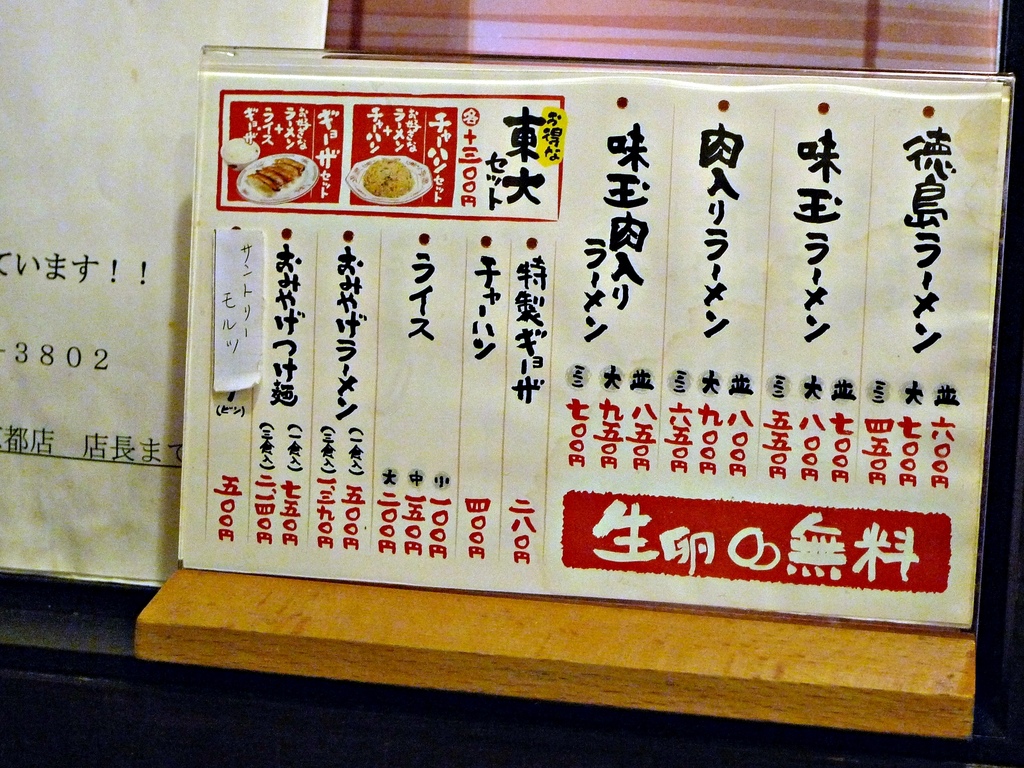 徳島ラーメン
並 六〇〇円
大 七〇〇円
ミニ 四五〇円
味玉ラーメン
並 七〇〇円
大 八〇〇円
ミニ 五五〇円
肉入りラーメン
並 八〇〇円
大 九〇〇円
ミニ 六五〇円
味玉肉入りラーメン
並 八五〇円
大 九五〇円
ミニ 七〇〇円
生卵の無料
お得な
東大セット
各+三〇〇円
チャーハンセット
お好きなラーメン
+
チャーハン
ギョーザセット
お好きなラーメン
+
ライス
+
ギョーザ
特製ギョーザ 二八〇円
チャーハン 四〇〇円
ライス
小 一〇〇円
中 一五〇円
大 二〇〇円
おみやげラーメン
(一食入) 五〇〇円
(三食入) 一、三九〇円
おみやげつけ麺
(一食入) 七五〇円
(三食入) 二、一四〇円
サントリー
モルツ
(ビン) 五〇〇円
ています！！
－３８０２
都店　店長まで